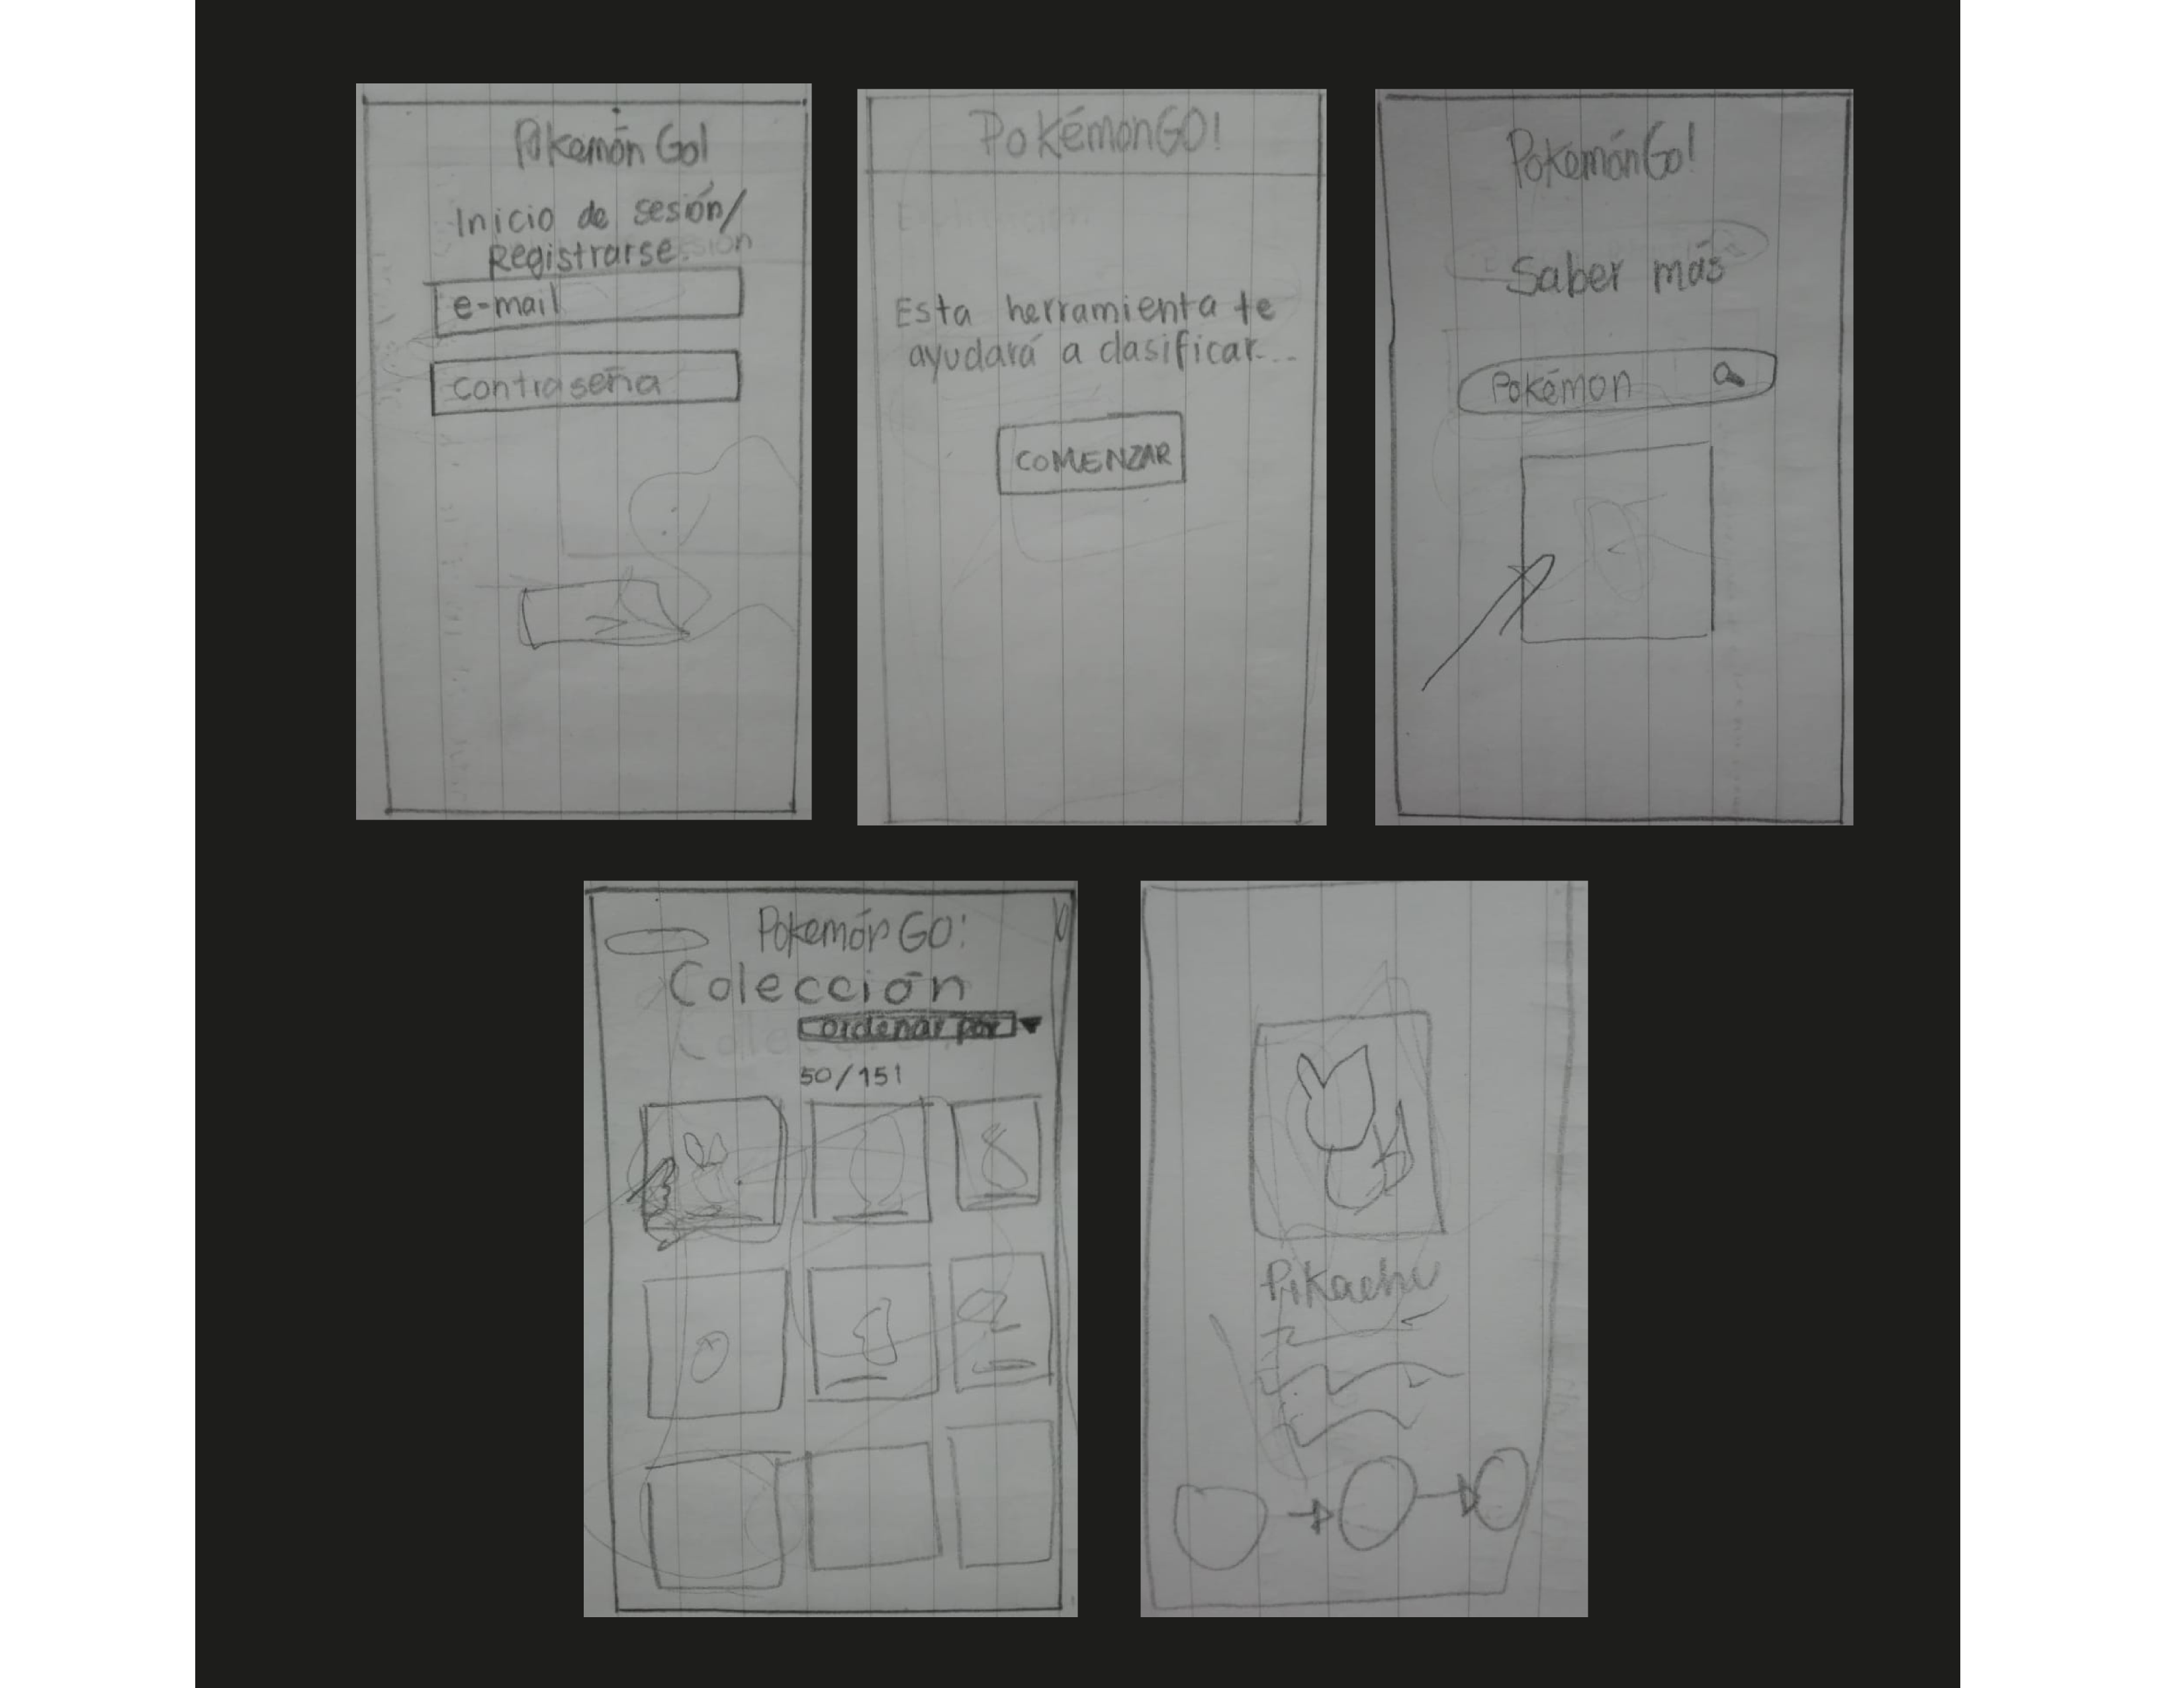 Pokemón Go!
Inicio de sesión/
Registrarse
e-mail
contraseña
PokémonGO!
Esta herramienta te
ayudará a clasificar...
COMENZAR
PokemónGo!
Saber más
Pokémon
Pokemón GO!
Colección
ordenar por
50/151
Pikachu